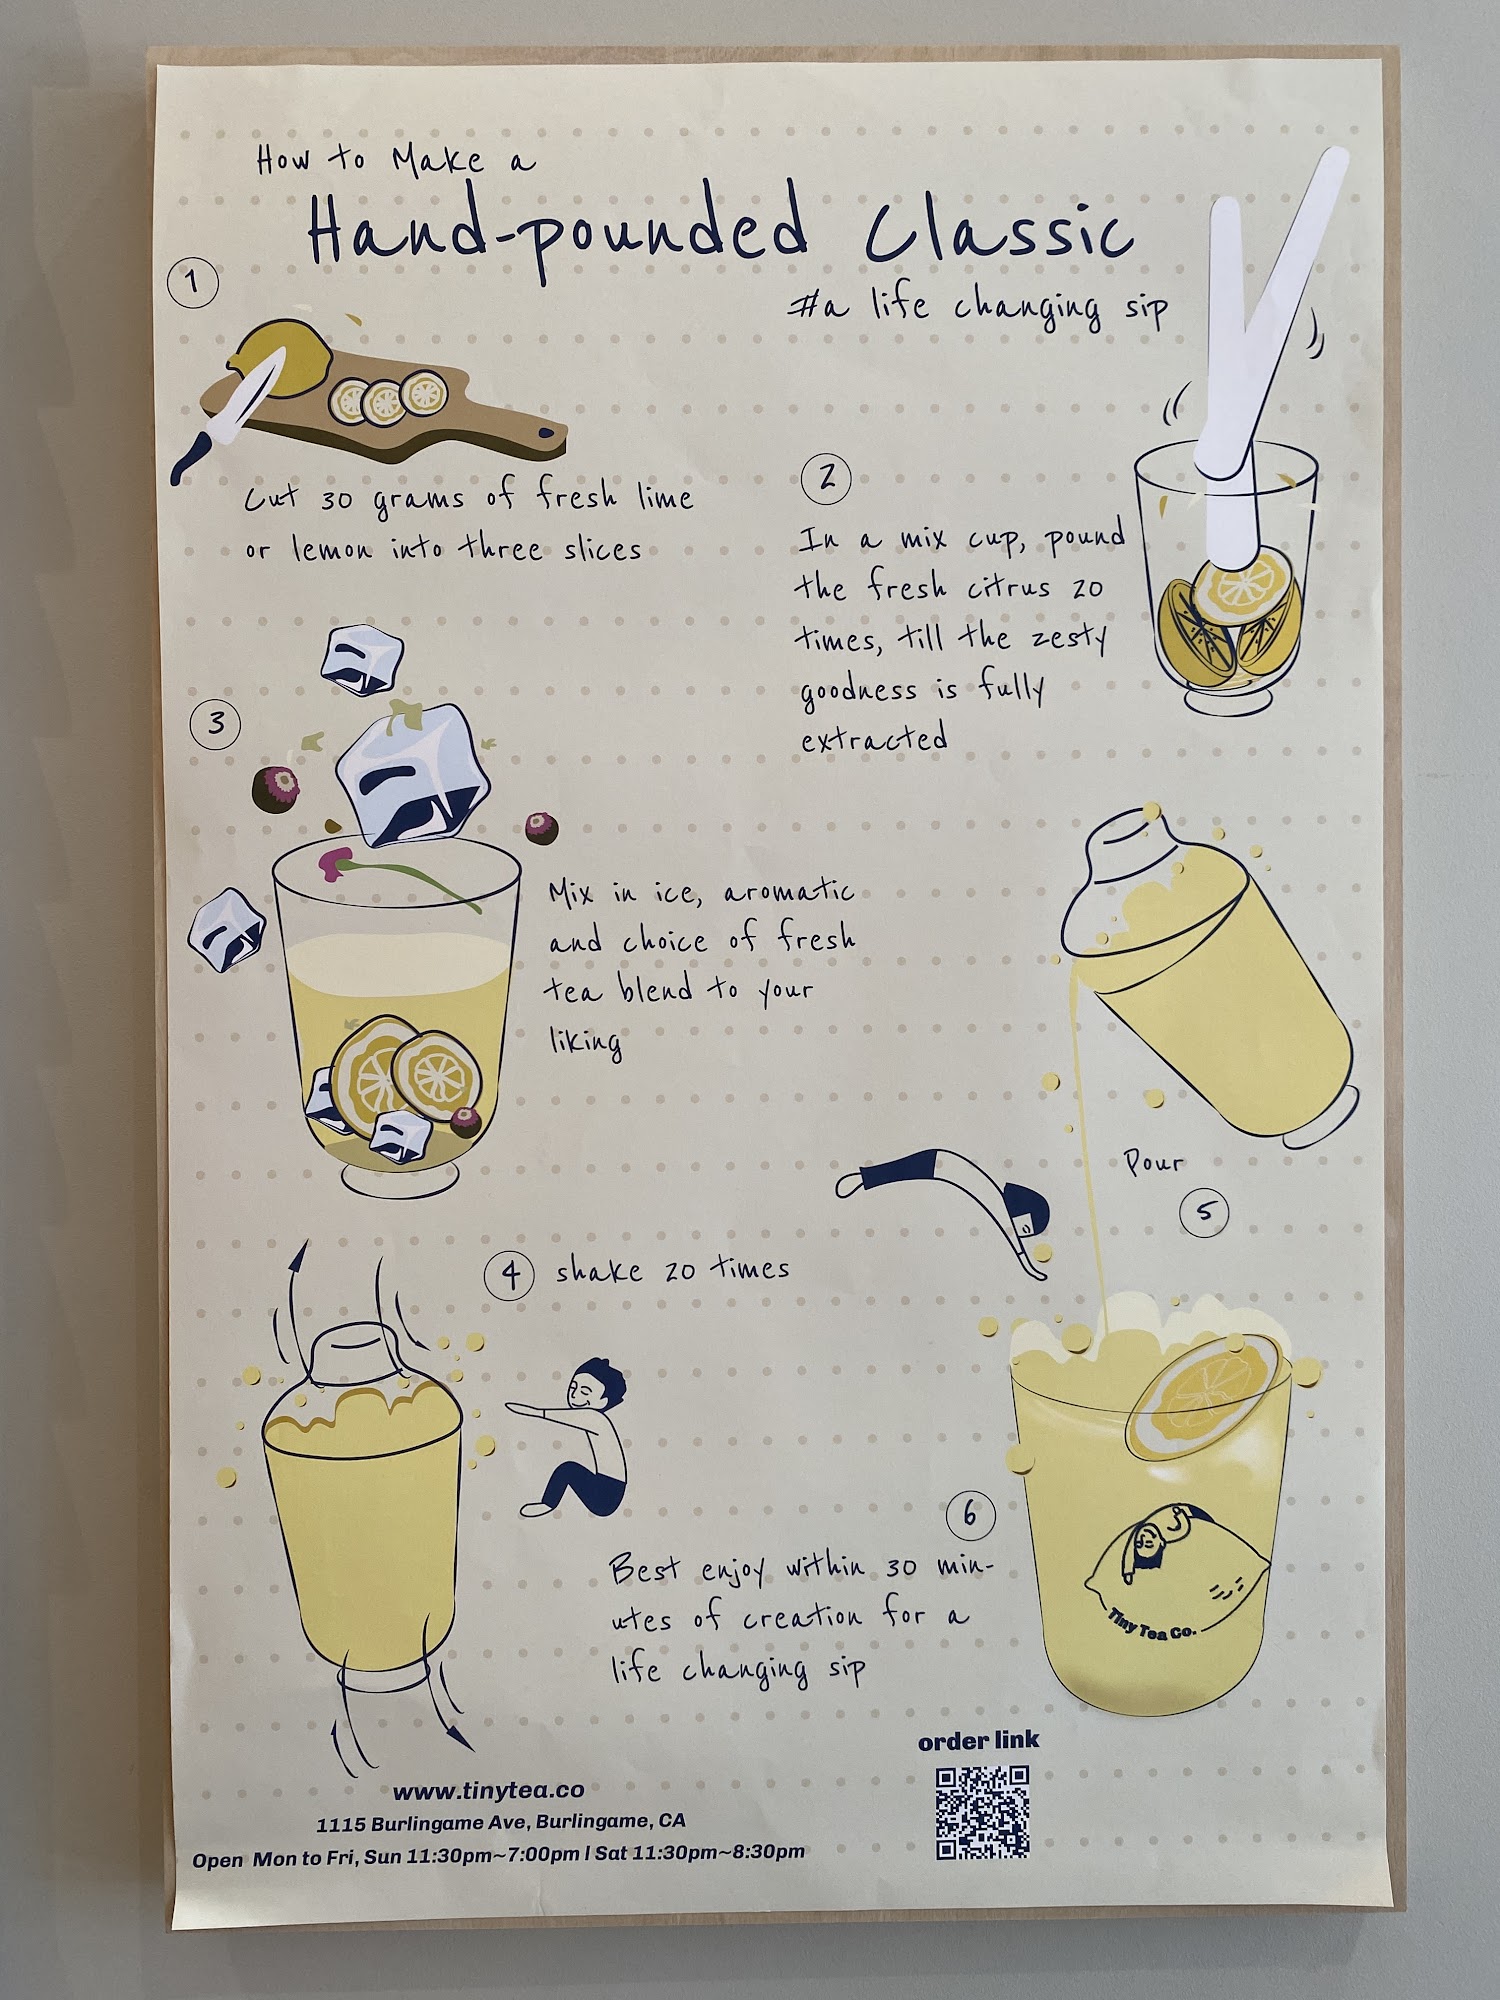 How to Make a
Hand-pounded Classic
#a life changing sip
1
Cut 30 grams of fresh lime
or lemon into three slices
2
In a mix cup, pound
the fresh citrus 20
times, till the zesty
goodness is fully
extracted
3
Mix in ice, aromatic
and choice of fresh
tea blend to your
liking
4 shake 20 times
Pour
5
6
Best enjoy within 30 min-
utes of creation for a
life changing sip
Tiny Tea Co.
order link
www.tinytea.co
1115 Burlingame Ave, Burlingame, CA
Open Mon to Fri, Sun 11:30pm~7:00pm | Sat 11:30pm~8:30pm